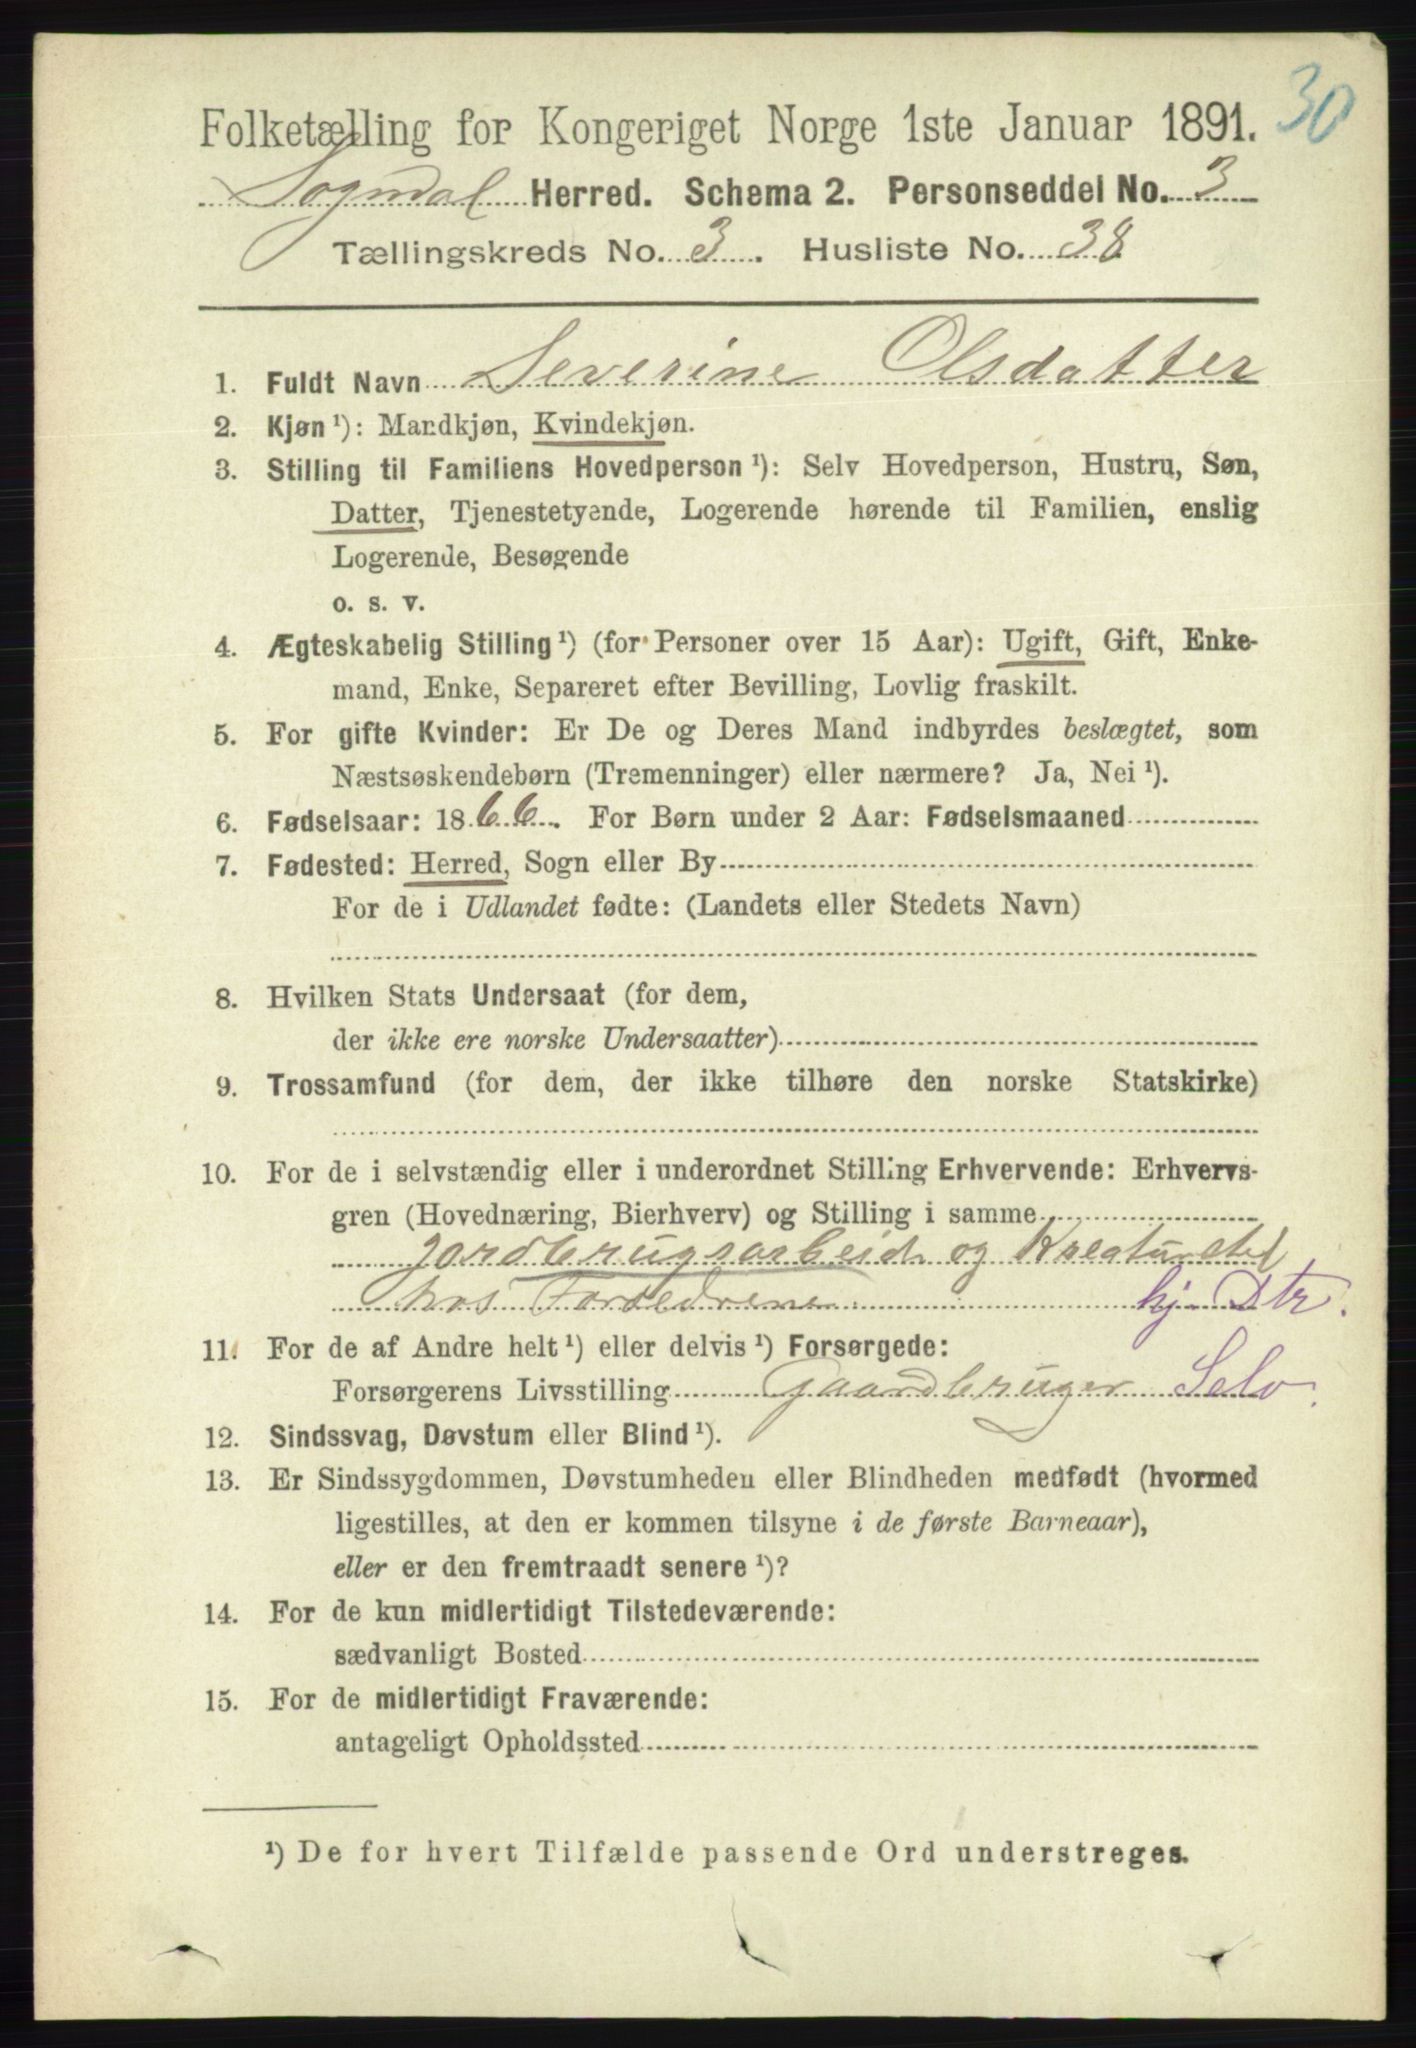 30
Folketælling for Kongeriget Norge 1ste Januar 1891.
Sogndal Herred. Schema 2. Personseddel No. 3
Tællingskreds No. 3. Husliste No. 38
1. Fuldt Navn Severine Olsdatter
2. Kjøn ¹): Mandkjøn, Kvindekjøn.
3. Stilling til Familiens Hovedperson ¹): Selv Hovedperson, Hustru, Søn,
Datter, Tjenestetyende, Logerende hørende til Familien, enslig
Logerende, Besøgende
o. s. v.
4. Ægteskabelig Stilling ¹) (for Personer over 15 Aar): Ugift, Gift, Enke-
mand, Enke, Separeret efter Bevilling, Lovlig fraskilt.
5. For gifte Kvinder: Er De og Deres Mand indbyrdes beslægtet, som
Næstsøskendebørn (Tremenninger) eller nærmere? Ja, Nei ¹).
6. Fødselsaar: 1866. For Børn under 2 Aar: Fødselsmaaned
7. Fødested: Herred, Sogn eller By
For de i Udlandet fødte: (Landets eller Stedets Navn)
8. Hvilken Stats Undersaat (for dem,
der ikke ere norske Undersaatter)
9. Trossamfund (for dem, der ikke tilhøre den norske Statskirke)
10. For de i selvstændig eller i underordnet Stilling Erhvervende: Erhvervs-
gren (Hovednæring, Bierhverv) og Stilling i samme
Jordbrugsarbeide og Kreaturstel
hos Foreldrene. hj. Dtr.
11. For de af Andre helt ¹) eller delvis ¹) Forsørgede:
Forsørgerens Livsstilling Gaardbruger Selv.
12. Sindssvag, Døvstum eller Blind ¹).
13. Er Sindssygdommen, Døvstumheden eller Blindheden medfødt (hvormed
ligestilles, at den er kommen tilsyne i de første Barneaar),
eller er den fremtraadt senere ¹)?
14. For de kun midlertidigt Tilstedeværende:
sædvanligt Bosted
15. For de midlertidigt Fraværende:
antageligt Opholdssted
¹) De for hvert Tilfælde passende Ord understreges.